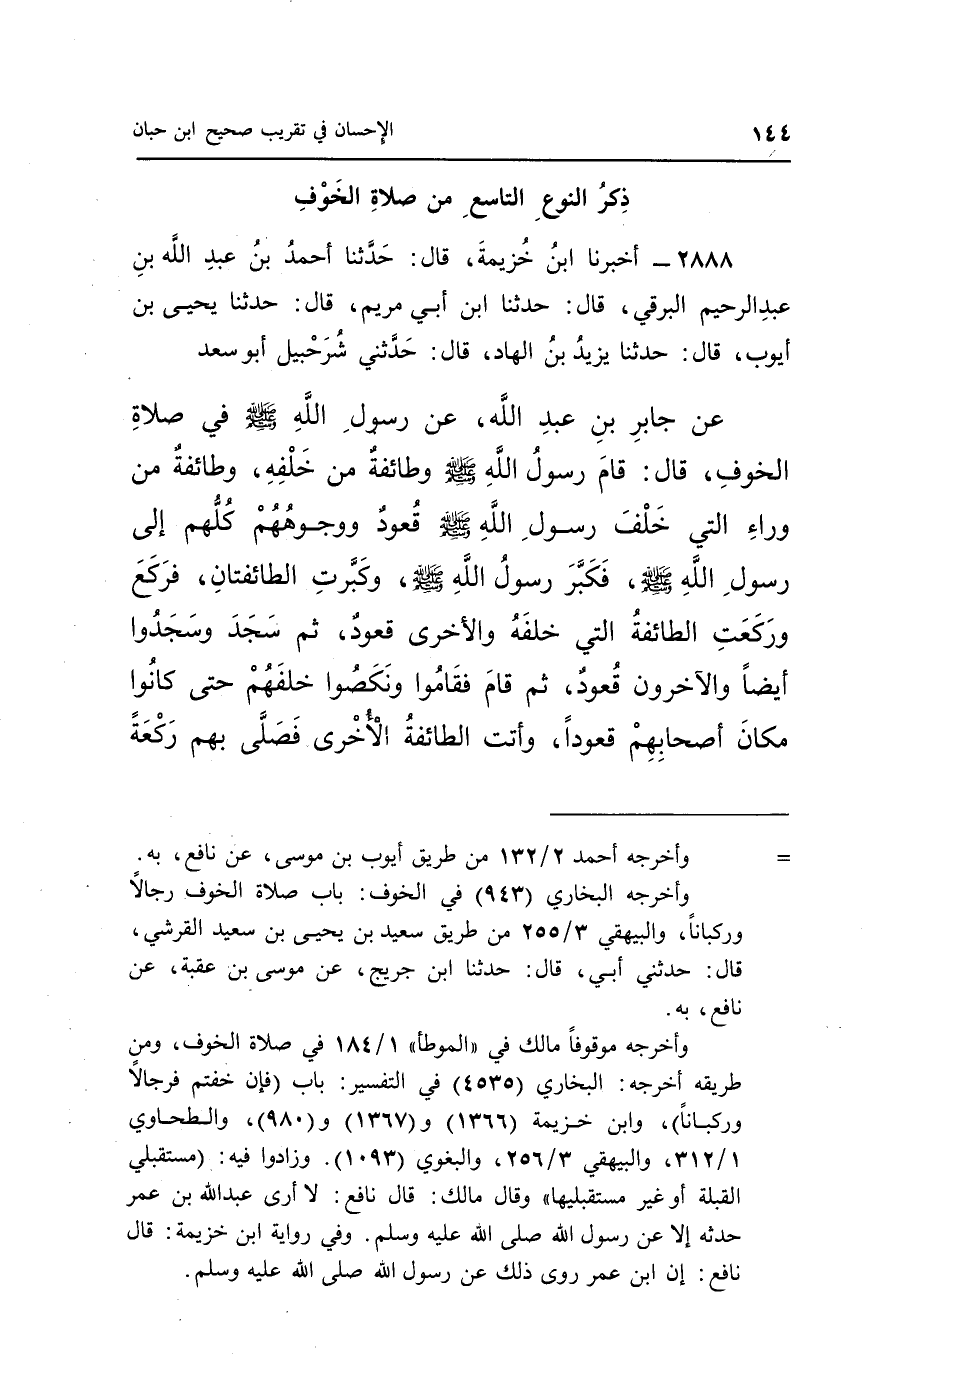 ١٤٤ الإحسان في تقريب صحيح ابن حبان
ذِكرُ النوعِ التاسعِ من صلاةِ الخَوْفِ
٢٨٨٨ ـ أخبرنا ابنُ خُزيمةَ، قال: حَدَّثنا أحمدُ بنُ عبدِ اللَّه بنِ
عبدِالرحيم البرقي، قال: حدثنا ابن أبي مريم، قال: حدثنا يحيى بن
أيوب، قال: حدثنا يزيدُ بنُ الهاد، قال: حَدَّثني شُرَحْبيل أبو سعد
عن جابرِ بنِ عبدِ اللَّه، عن رسولِ اللَّهِ ﷺ في صلاةِ
الخوفِ، قال: قامَ رسولُ اللَّهِ ﷺ وطائفةٌ من خَلْفِهِ، وطائفةٌ من
وراءِ التي خَلْفَ رسولِ اللَّهِ ﷺ قُعودٌ ووجوهُهُمْ كُلُّهم إلى
رسولِ اللَّهِ ﷺ، فَكَبَّرَ رسولُ اللَّهِ ﷺ، وكَبَّرتِ الطائفتانِ، فرَكَعَ
ورَكَعَتِ الطائفةُ التي خلفَهُ والأخرى قعودٌ، ثم سَجَدَ وسَجَدُوا
أيضاً والآخرون قُعودٌ، ثم قامَ فقَامُوا ونَكَصُوا خلفَهُمْ حتى كانُوا
مكانَ أصحابِهِمْ قعوداً، وأتت الطائفةُ الْأُخْرى فَصَلَّى بهم رَكْعَةً
= وأخرجه أحمد ١٣٢/٢ من طريق أيوب بن موسى، عن نافع، به.
وأخرجه البخاري (٩٤٣) في الخوف: باب صلاة الخوف رجالاً
وركباناً، والبيهقي ٢٥٥/٣ من طريق سعيد بن يحيى بن سعيد القرشي،
قال: حدثني أبي، قال: حدثنا ابن جريج، عن موسى بن عقبة، عن
نافع، به.
وأخرجه موقوفاً مالك في «الموطأ» ١٨٤/١ في صلاة الخوف، ومن
طريقه أخرجه: البخاري (٤٥٣٥) في التفسير: باب (فإن خفتم فرجالاً
وركباناً)، وابن خزيمة (١٣٦٦) و(١٣٦٧) و(٩٨٠)، والطحاوي
٣١٢/١، والبيهقي ٢٥٦/٣، والبغوي (١٠٩٣). وزادوا فيه: (مستقبلي
القبلة أو غير مستقبليها» وقال مالك: قال نافع: لا أرى عبدالله بن عمر
حدثه إلا عن رسول الله صلى الله عليه وسلم. وفي رواية ابن خزيمة: قال
نافع: إن ابن عمر روى ذلك عن رسول الله صلى الله عليه وسلم.